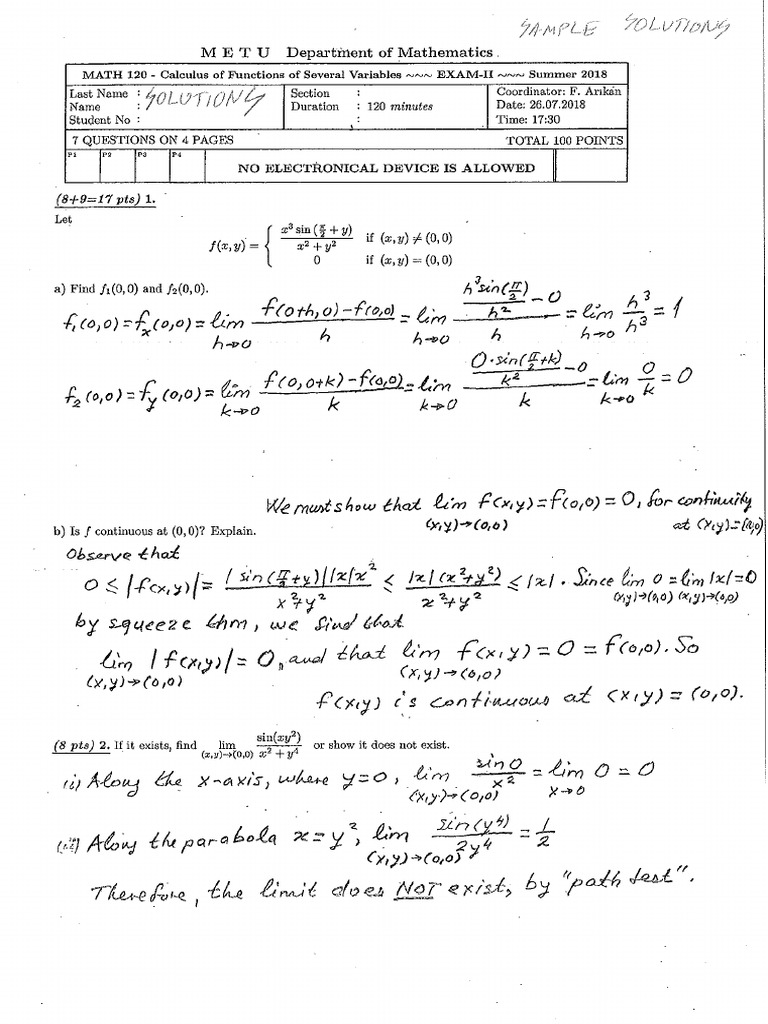 SAMPLE SOLUTIONS
M E T U Department of Mathematics
MATH 120 - Calculus of Functions of Several Variables ~~~ EXAM-II ~~~ Summer 2018
Last Name : SOLUTIONS Section : Coordinator: F. Arıkan
Name : Duration : 120 minutes Date: 26.07.2018
Student No : : Time: 17:30
7 QUESTIONS ON 4 PAGES TOTAL 100 POINTS
P1 P2 P3 P4 NO ELECTRONICAL DEVICE IS ALLOWED
(8+9=17 pts) 1.
Let
f(x, y) = { x³ sin (π/2 + y) / (x² + y²) if (x, y) ≠ (0, 0)
0 if (x, y) = (0, 0)
a) Find f₁(0, 0) and f₂(0, 0).
f₁(0,0) = fₓ(0,0) = lim h→0 (f(0+h,0) − f(0,0))/h = lim h→0 (h³ sin(π/2)/h² − 0)/h = lim h→0 h³/h³ = 1
f₂(0,0) = f_y(0,0) = lim k→0 (f(0,0+k) − f(0,0))/k = lim k→0 (0·sin(π/2+k)/k² − 0)/k = lim k→0 0/k = 0
We must show that lim (x,y)→(0,0) f(x,y) = f(0,0) = 0, for continuity
at (x,y)=(0,0)
b) Is f continuous at (0, 0)? Explain.
Observe that
0 ≤ |f(x,y)| = |sin(π/2+y)||x|x² / (x²+y²) ≤ |x|(x²+y²) / (x²+y²) ≤ |x|. Since lim (x,y)→(0,0) 0 = lim (x,y)→(0,0) |x| = 0
by squeeze thm, we find that
lim (x,y)→(0,0) |f(x,y)| = 0, and that lim (x,y)→(0,0) f(x,y) = 0 = f(0,0). So
f(x,y) is continuous at (x,y) = (0,0).
(8 pts) 2. If it exists, find lim (x,y)→(0,0) sin(xy²) / (x² + y⁴) or show it does not exist.
(i) Along the x-axis, where y=0, lim (x,y)→(0,0) sin0 / x² = lim x→0 0 = 0
(ii) Along the parabola x=y², lim (x,y)→(0,0) sin(y⁴) / 2y⁴ = 1/2
Therefore, the limit does NOT exist, by "path test".